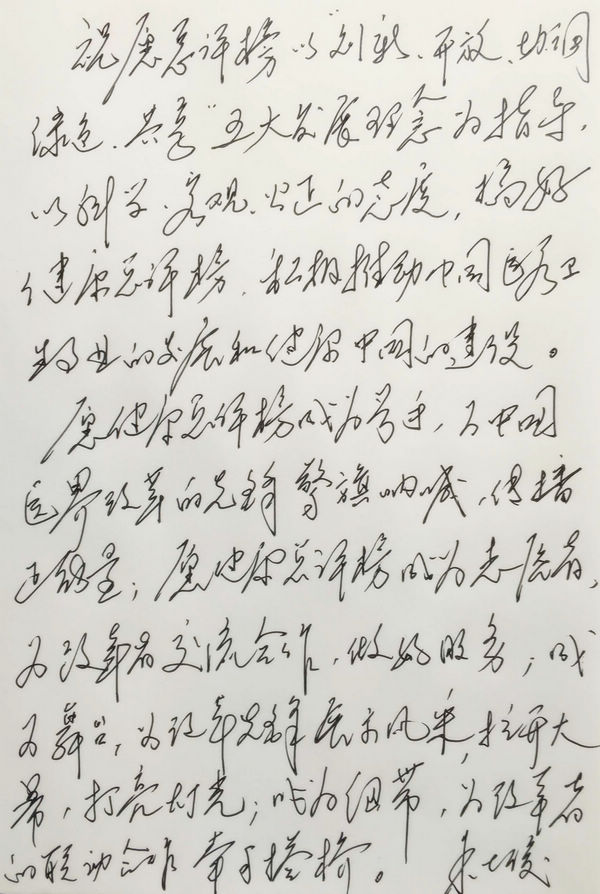 祝愿总评榜以“创新、开放、协调
绿色、共享”五大发展理念为指导,
以科学、客观、公正的态度,搞好
健康总评榜,积极推动中国医疗卫
生事业的发展和健康中国的建设。
愿健康总评榜成为号手,为中国
医界改革的先锋擎旗呐喊,传播
正能量;愿健康总评榜成为志愿者,
为改革者交流合作,做好服务;成
为舞台,为改革先锋展示风采,拉开大
幕,打亮灯光;成为纽带,为改革者
的联动合作牵手搭桥。